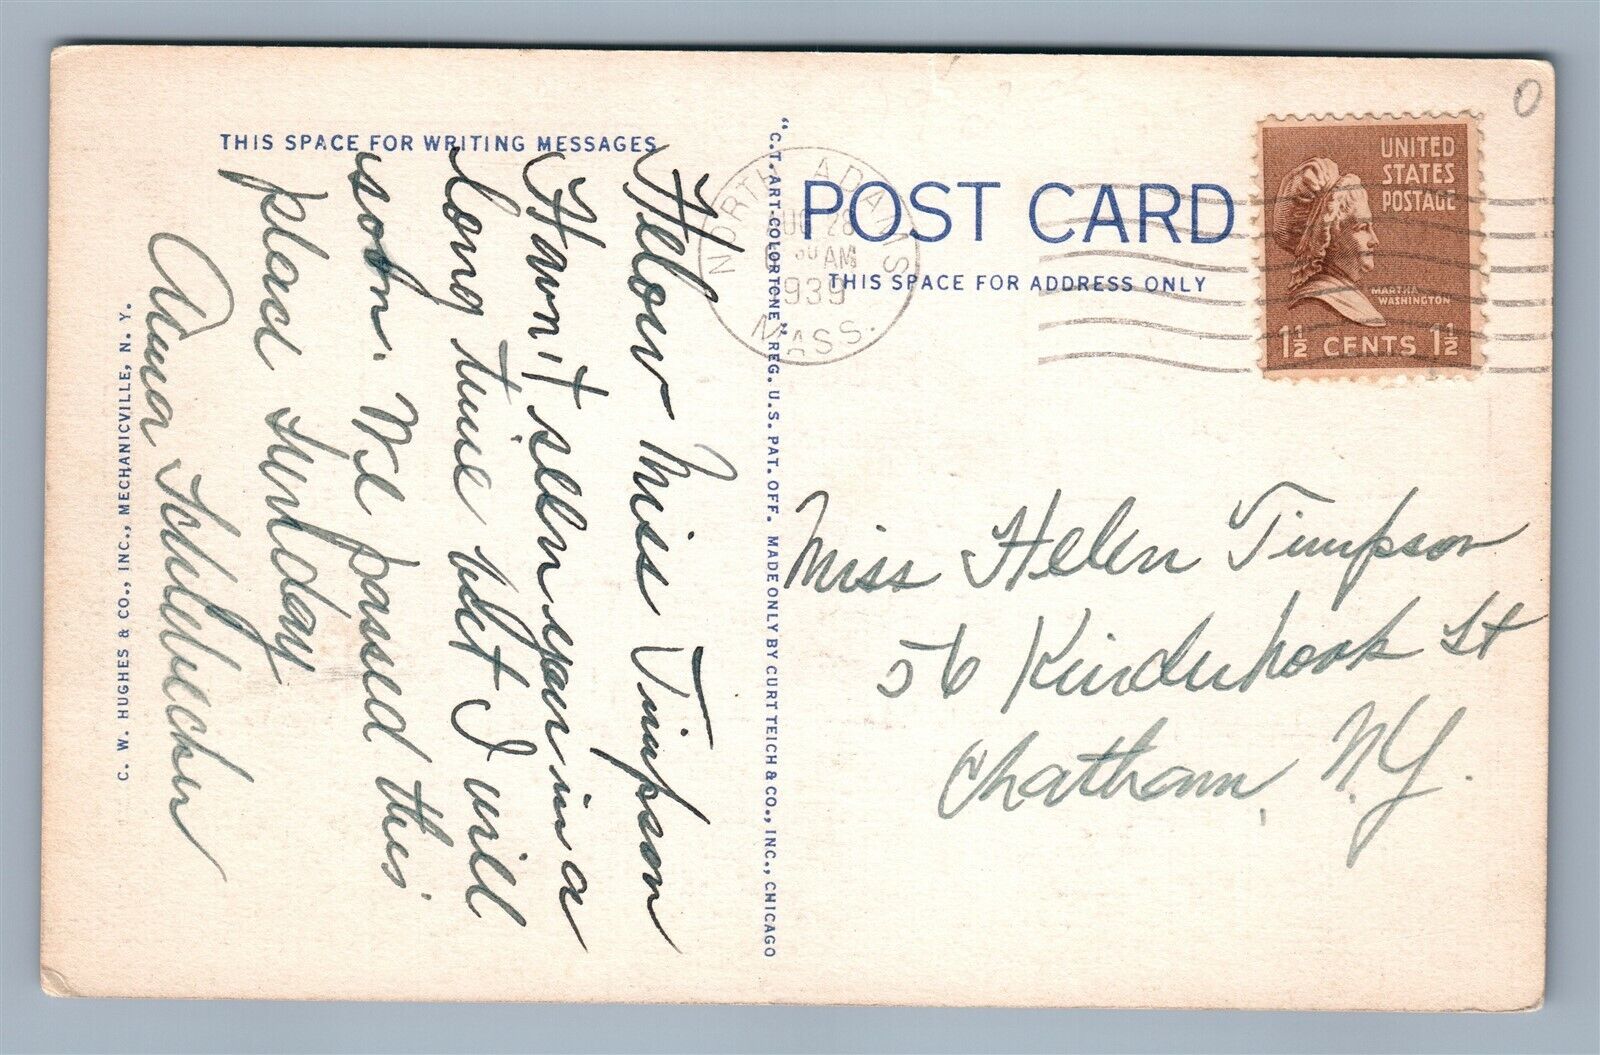 THIS SPACE FOR WRITING MESSAGES
Hellow Miss Timpson
Havn't seen you in a
long time but I will
soon. We passed this
place Sunday
Anna
C. W. HUGHES & CO., INC., MECHANICVILLE, N. Y.
"C.T. ART-COLORTONE" REG. U.S. PAT. OFF. MADE ONLY BY CURT TEICH & CO., INC., CHICAGO
NORTH ADAMS
AUG 28
30 AM
1939
MASS.
POST CARD
THIS SPACE FOR ADDRESS ONLY
UNITED
STATES
POSTAGE
MARTHA
WASHINGTON
1½ CENTS 1½
Miss Helen Timpson
56 Kinderhook St
Chatham, N.Y.
0